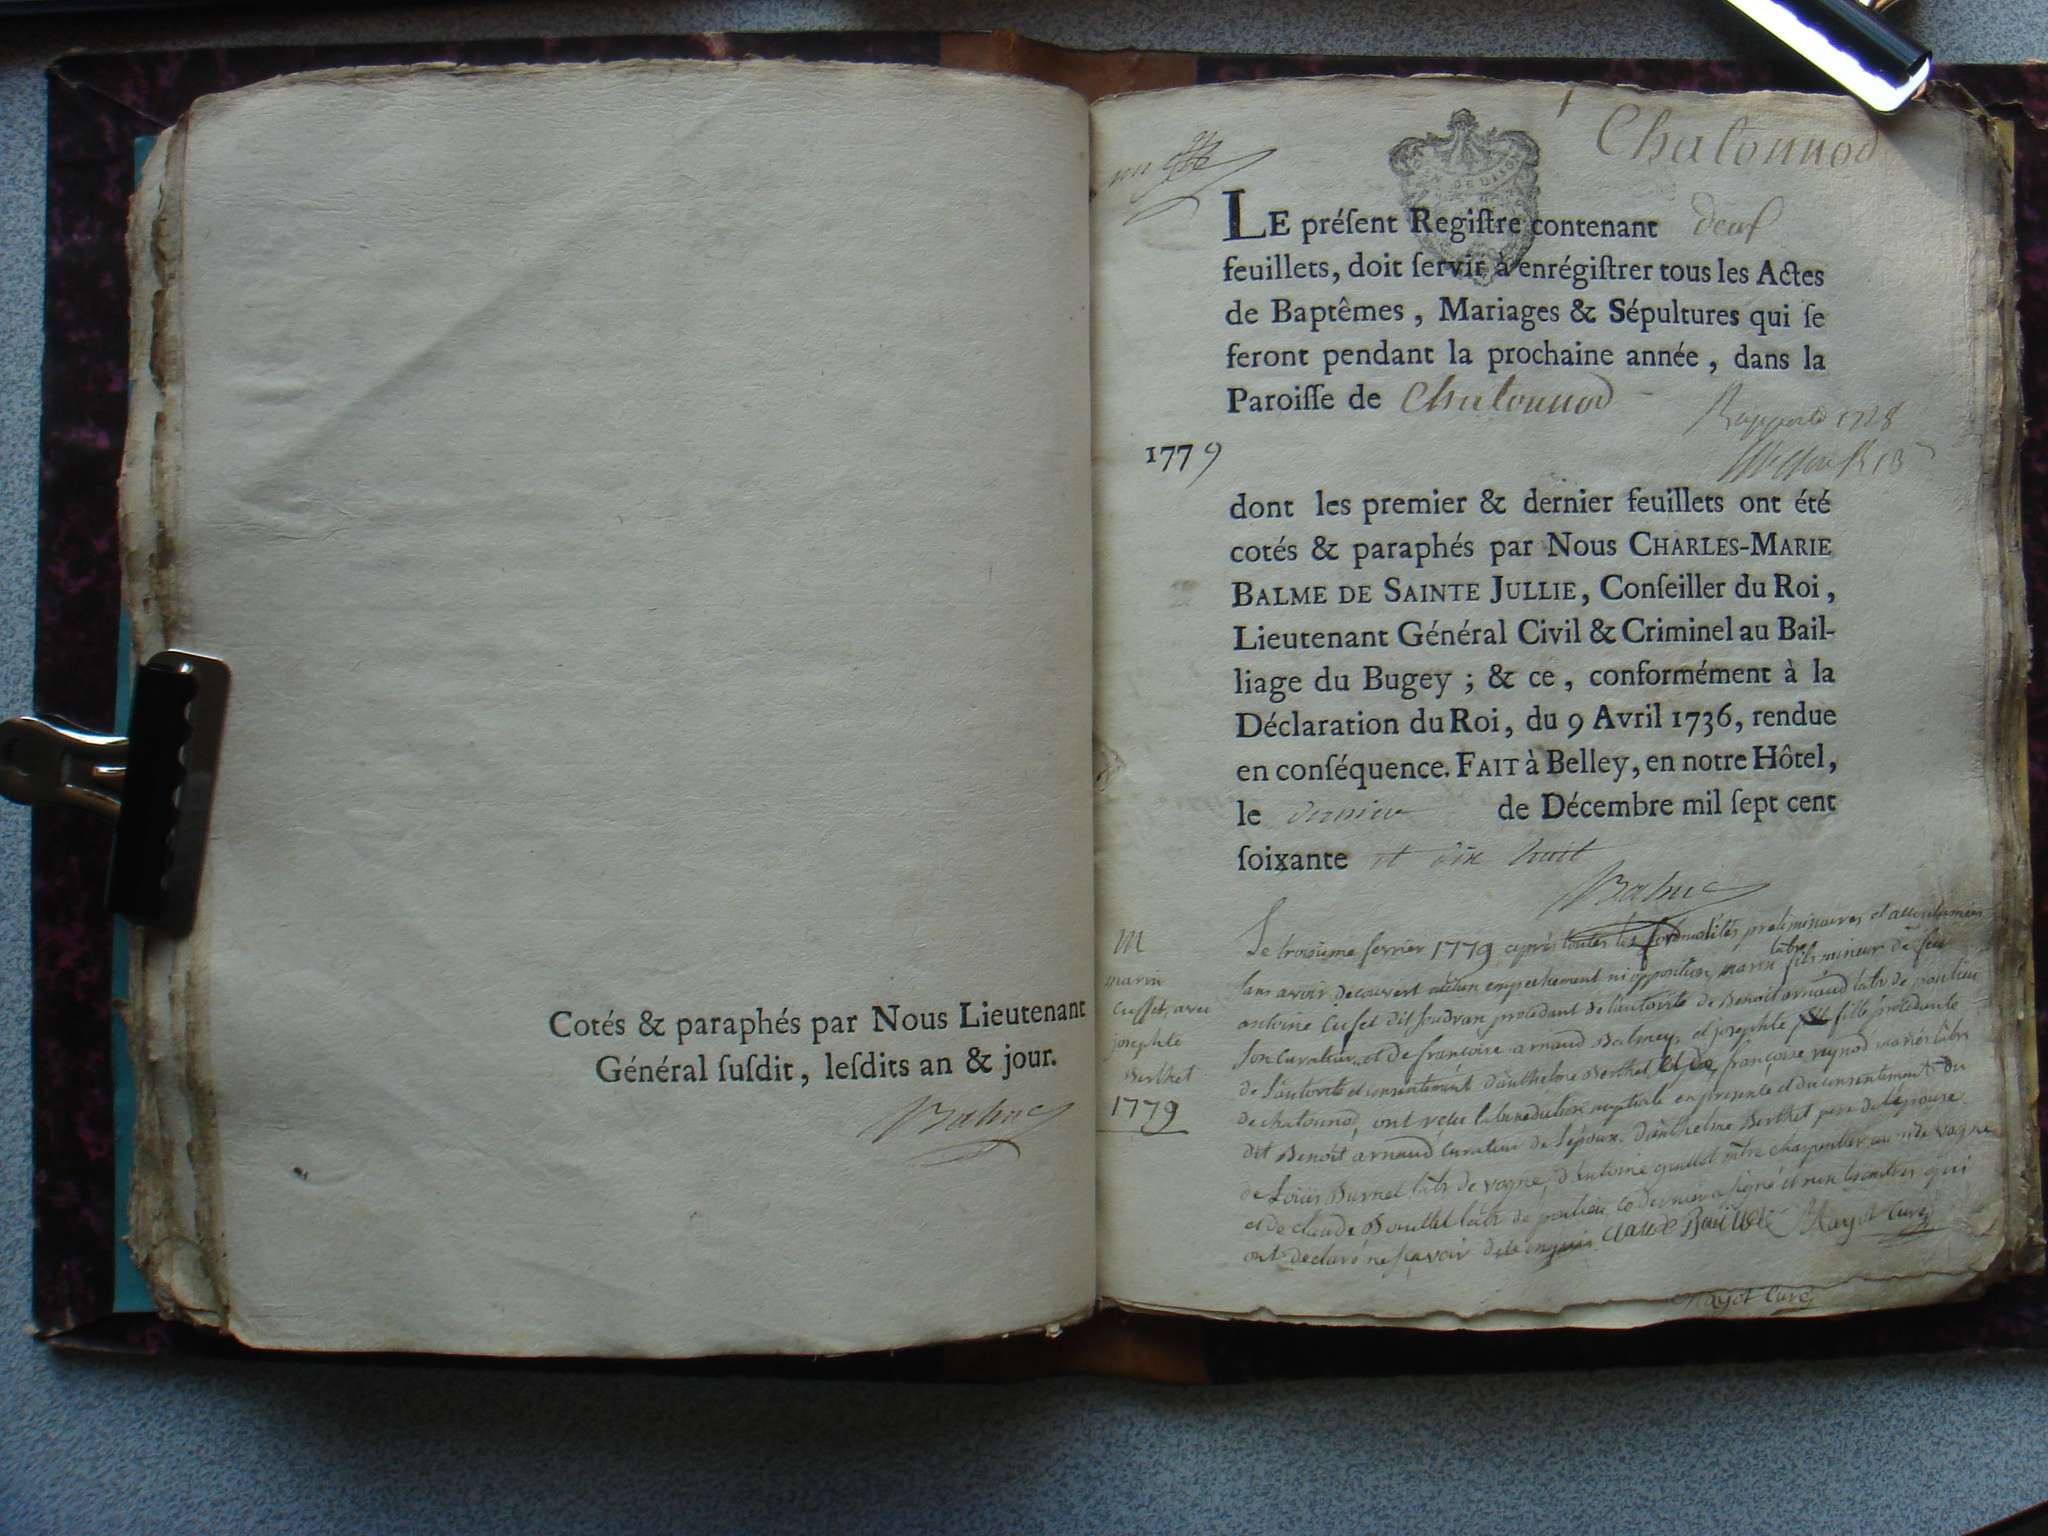 Cotés & paraphés par Nous Lieutenant
Général ſuſdit, leſdits an & jour.
Balme
Chatonnod
LE préſent Regiſtre contenant
feuillets, doit ſervir à enrégiſtrer tous les Actes
de Baptêmes, Mariages & Sépultures qui ſe
feront pendant la prochaine année, dans la
Paroiſſe de Chatonnod
1779
dont les premier & dernier feuillets ont été
cotés & paraphés par Nous CHARLES-MARIE
BALME DE SAINTE JULLIE, Conſeiller du Roi,
Lieutenant Général Civil & Criminel au Bail-
liage du Bugey; & ce, conformément à la
Déclaration du Roi, du 9 Avril 1736, rendue
en conſéquence. FAIT à Belley, en notre Hôtel,
le dernier de Décembre mil ſept cent
ſoixante et dix huit
Balme
M
marin
Cusset avec
josephte
Berthet
1779
Le troisième fevrier 1779 après toutes les formalités preliminaires et accoutumées
sans avoir decouvert aucun empechement ni opposition marin labr fils mineur de feu
antoine Cuset dit procédant de l'autorité de Benoit arnaud labr de poulieu
son Curateur et de françoise arnaud et josephte fille procedante
de l'autorité et consentement d'anthelme Berthet et de françoise reynod mariés labrs
de chatonnod, ont reçu la benediction nuptiale en presence et du consentement du
dit Benoit arnaud Curateur de l'époux, d'anthelme Berthet pere de l'epouse
de Loüis Burnet labr de vogne, d'antoine mtre charpentier de vogne
et de claude Bouillet labr de poulieu ce dernier a signé et non les autres qui
ont declaré ne sçavoir de ce enquis Claude Mayot Curé
Mayot Curé